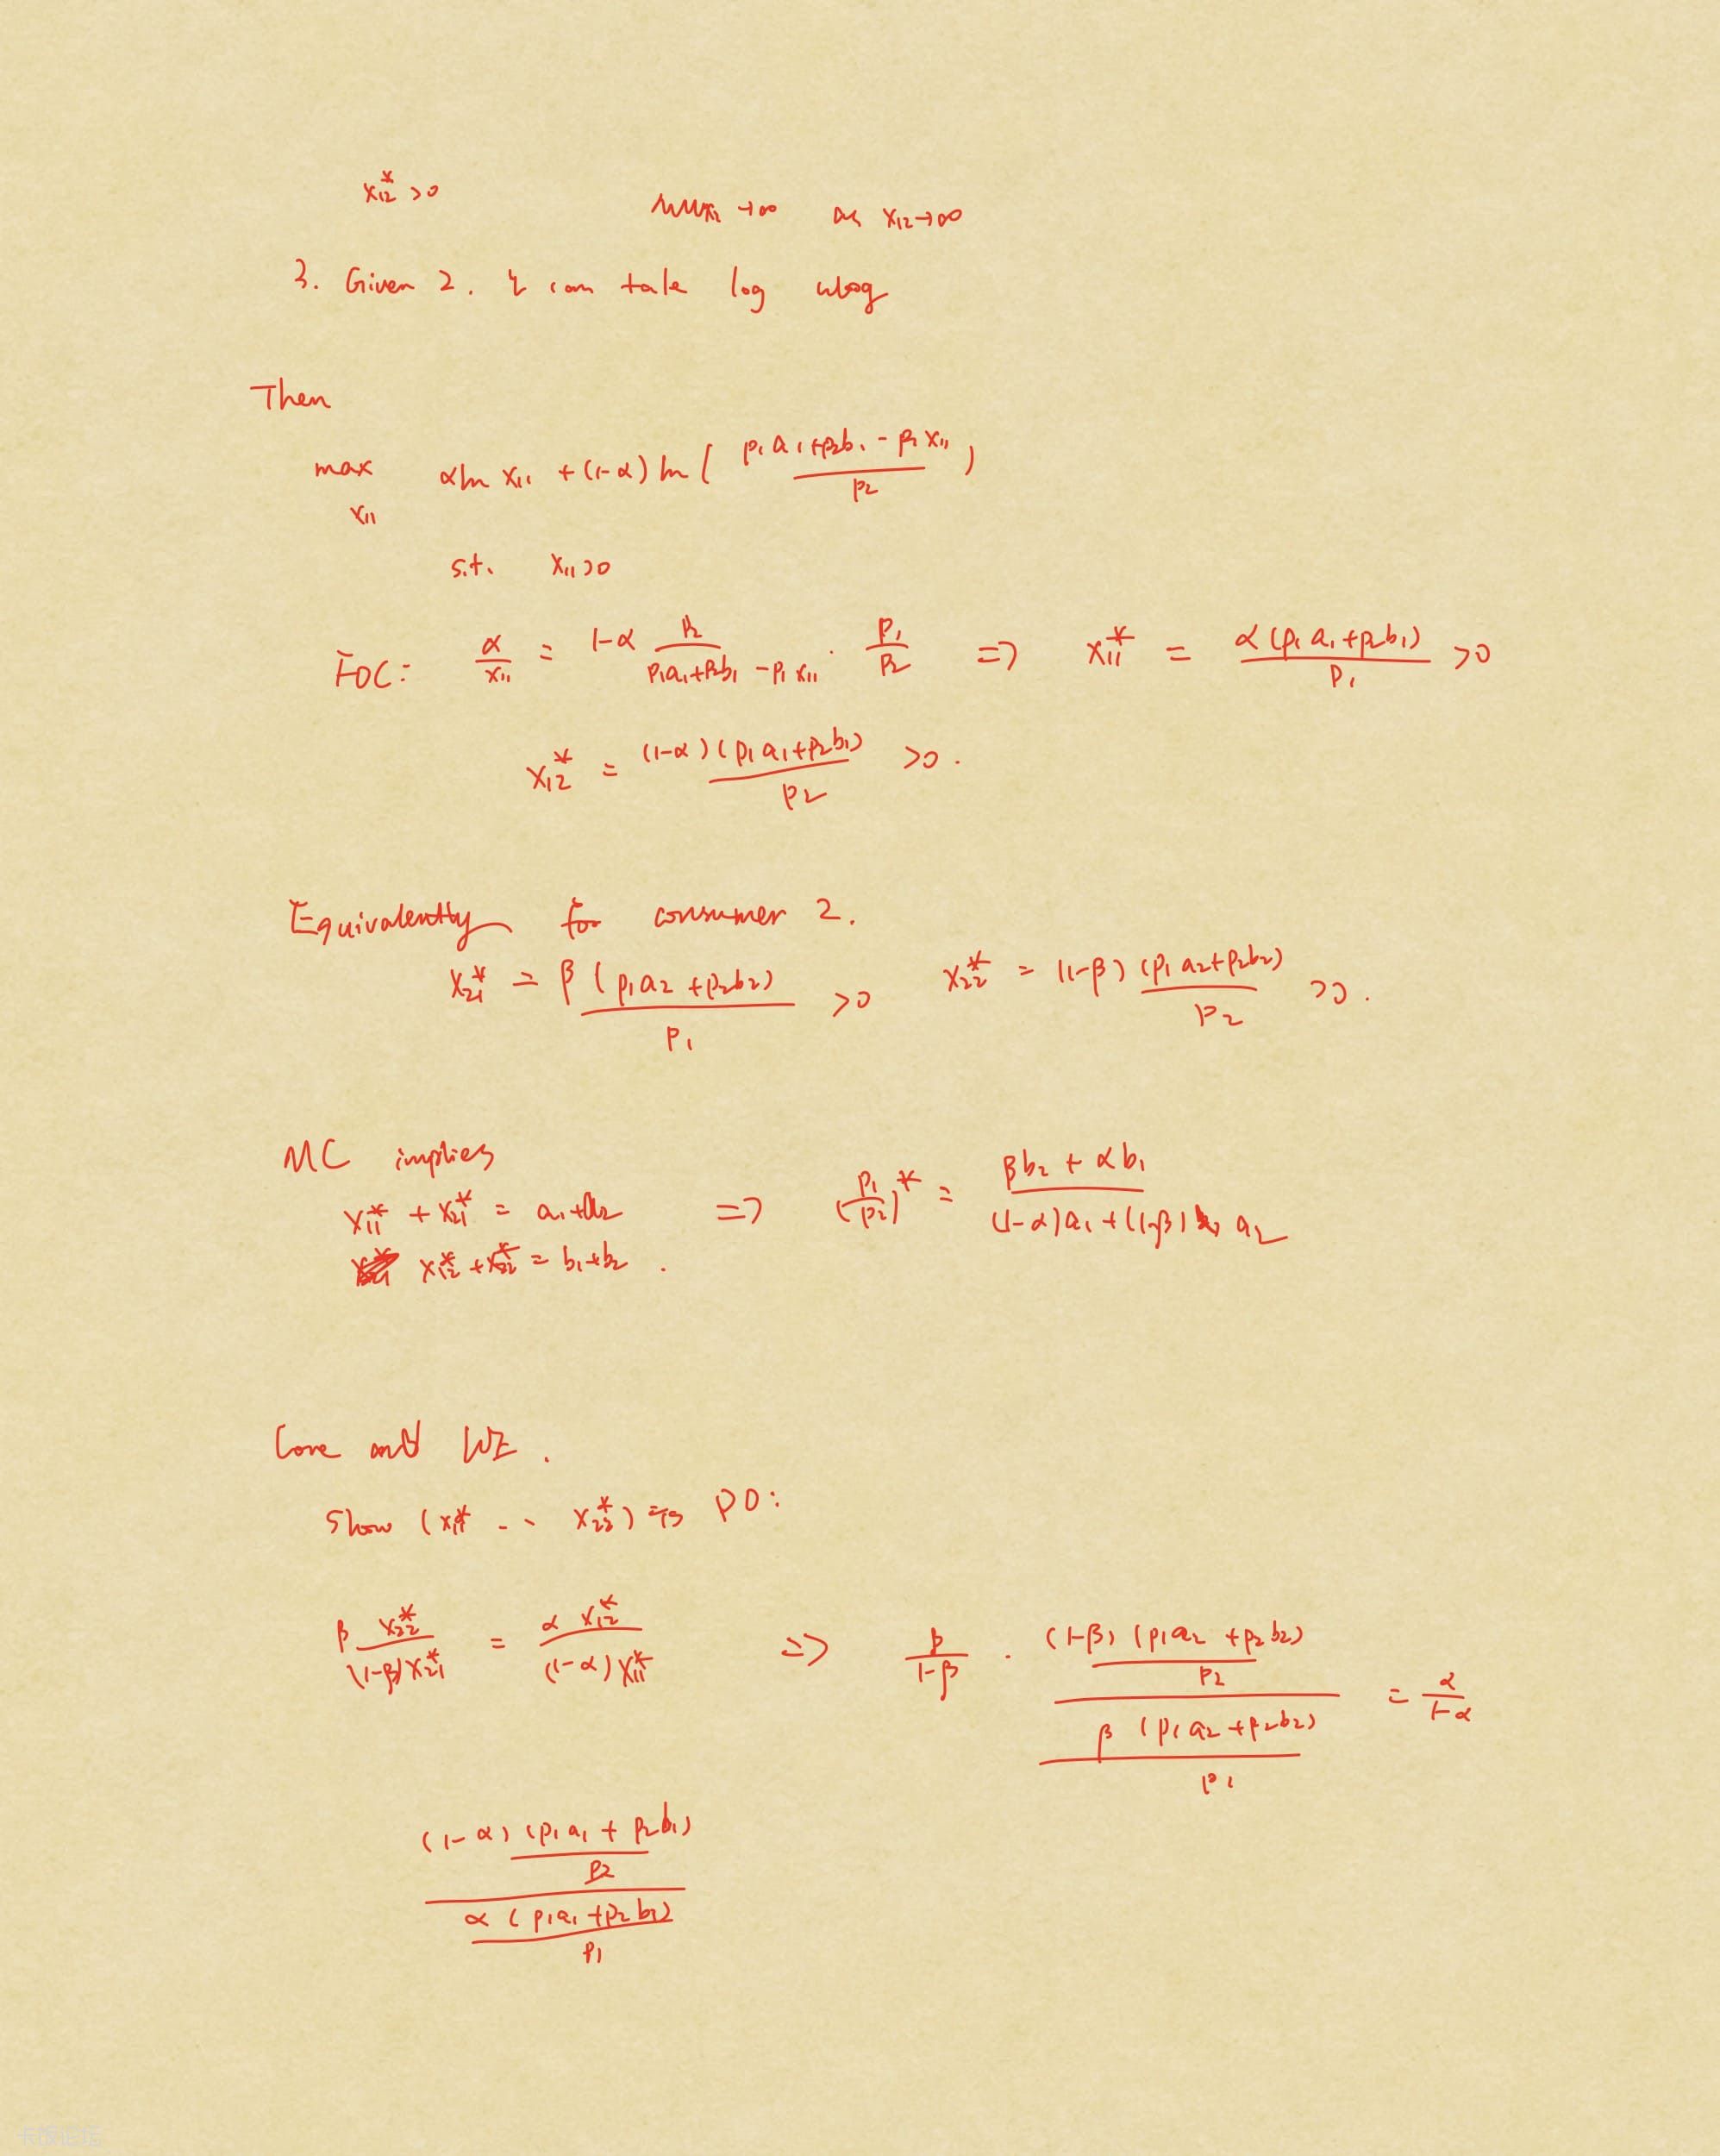 x₁₂* >0 →∞ as x₁₂→∞
3. Given 2. can take log wlog
Then
max αln x₁₁ + (1-α) ln ( (p₁a₁+p₂b₁ - p₁x₁₁) / p₂ )
x₁₁
s.t. x₁₁>0
FOC: α/x₁₁ = 1-α p₂/(p₁a₁+p₂b₁ - p₁x₁₁) · p₁/p₂ => x₁₁* = α(p₁a₁+p₂b₁)/p₁ >0
x₁₂* = (1-α)(p₁a₁+p₂b₁)/p₂ >0.
Equivalently for consumer 2.
x₂₁* = β(p₁a₂+p₂b₂)/p₁ >0 x₂₂* = (1-β)(p₁a₂+p₂b₂)/p₂ >0.
MC implies
x₁₁* + x₂₁* = a₁+a₂ => (p₁/p₂)* = (βb₂ + αb₁)/((1-α)a₁ + (1-β) a₂)
x₁₂* + x₂₂* = b₁+b₂.
Core and WE.
Show (x₁₁* - - x₂₂*) is PO:
β x₂₂*/((1-β)x₂₁*) = α x₁₂*/((1-α)x₁₁*) => β/(1-β) · ((1-β)(p₁a₂+p₂b₂)/p₂)/(β(p₁a₂+p₂b₂)/p₁) = α/(1-α)
((1-α)(p₁a₁+p₂b₁)/p₂)/(α(p₁a₁+p₂b₁)/p₁)